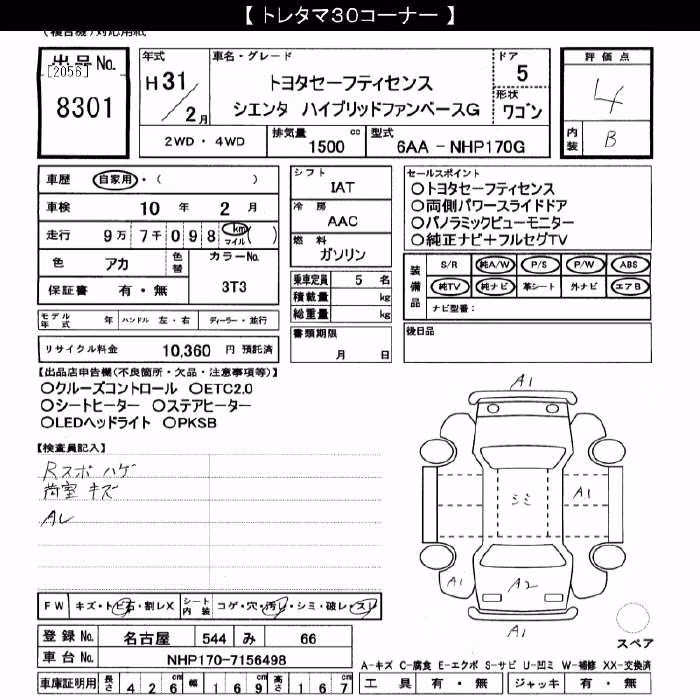 【 トレタマ30コーナー 】
(複合機)対応用紙
出品No.
[2056]
8301
年式
H31/2月
車名・グレード
トヨタセーフティセンス
シエンタ ハイブリッドファンベースG
ドア
5
形状
ワゴン
評価点
4
内装
B
2WD ・ 4WD
排気量 1500 cc
型式 6AA - NHP170G
車歴 自家用・( )
車検 10 年 2 月
走行 9万7千098 km マイル ( )
色 アカ
色替
カラーNo.
3T3
保証書 有・無
シフト
IAT
冷房
AAC
燃料
ガソリン
乗車定員 5 名
積載量 kg
総重量 kg
セールスポイント
○トヨタセーフティセンス
○両側パワースライドドア
○パノラミックビューモニター
○純正ナビ+フルセグTV
装備品
S/R 純A/W P/S P/W ABS
純TV 純ナビ 革シート 外ナビ エアB
ナビ型番:
モデル年式 年 ハンドル 左・右 ディーラー・並行
書類期限
月 日
後日品
リサイクル料金 10,360 円 預託済
【出品店申告欄(不良箇所・欠品・注意事項等)】
○クルーズコントロール ○ETC2.0
○シートヒーター ○ステアヒーター
○LEDヘッドライト ○PKSB
【検査員記入】
Rスポ ハゲ
荷室 キズ
AL
A1
シミ
A1
A1
A2
A1
スペア
FW キズ・トビ石・割レX
シート内装 コゲ・穴・汚レ・シミ・破レ・スレ
登録No. 名古屋 544 み 66
車台No. NHP170-7156498
A-キズ C-腐食 E-エクボ S-サビ U-凹ミ W-補修 XX-交換済
車庫証明用 長さ 426cm 幅 169cm 高さ 167cm
工具 有・無 ジャッキ 有・無